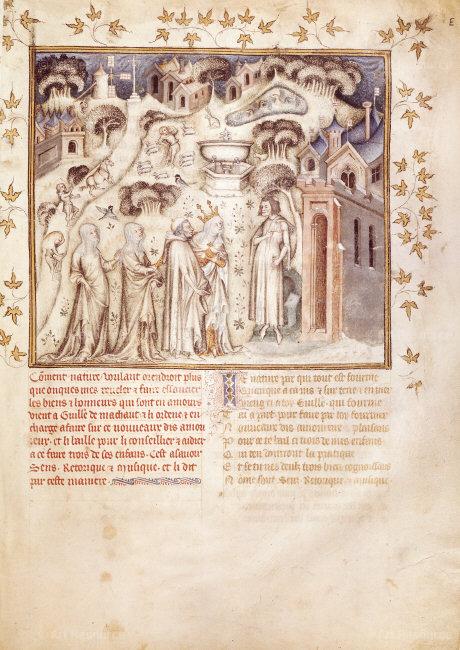 Coment nature voulant orendroit plus
que onques mes reveler & faire essaucier
les biens & honneurs qui sont en amours
vient a Guille de machaut & li ordene & en
charge a faire sur ce nouveaux dis amou
reux. et li baille pour li conseillier & aidier
a ce faire trois de ses enfans. Cest asavoir
Sens. Retorique & musique. et li dit
par ceste maniere.
Je nature par qui tout est fourme
Quanque a ca jus & sur terre & en mer
Vieng ci a toy Guille. qui fourme
Tai a part pour faire par toy fourmer
Nouveaux dis amoureus plaisans
Pour ce te bail ci trois de mes enfans
Qui ten donront la pratique
Et se tu nes deuls trois bien cognoissans
Nome sont Sens Retorique & musique
E